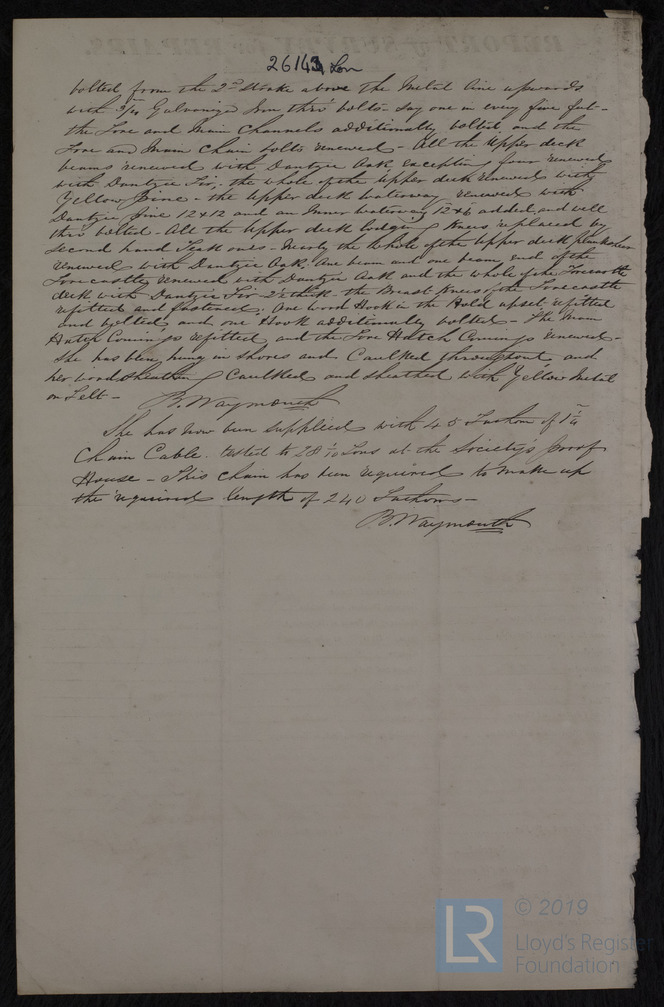 REPORT of SURVEY for REPAIRS.
26143 Lon
bolted from the 2nd Strake above the Metal line upwards
with 3/4 Galvanized Iron thro' bolts - say one in every five feet -
the Fore and Main Channels additionally bolted, and the
Fore and Main Chain bolts renewed - All the Upper deck
beams renewed with Dantzic Oak, excepting four renewed
with Dantzic Fir; the whole of the Upper deck renewed with
Yellow Pine - the Upper deck waterway renewed with
Dantzic Pine 12x12 and an Inner waterway 12x6 added, and well
thro' bolted - All the Upper deck lodging Knees replaced by
Second hand Teak ones - Nearly the whole of the Upper deck
renewed with Dantzic Oak, One beam and one beam end of the
Forecastle renewed with Dantzic Oak and the whole of the Forecastle
deck with Dantzic Fir thick - the Breast Knees of the Forecastle
refitted and fastened; One wood Hook in the Hold upset, refitted
and bolted, and one Hook additionally bolted - The Main
Hatch Comings refitted, and the Fore Hatch Comings renewed -
She has been hung in shores and Caulked throughout, and
her wood sheathing Caulked and sheathed with Yellow Metal
on Felt -
B. Waymouth
She has now been supplied with 45 Fathom of 1 1/4
Chain Cable. tested to 28 1/10 Tons at the Society's Proof
House - This chain has been required to make up
the required length of 240 Fathoms -
B. Waymouth
LR
© 2019
Lloyd's Register
Foundation